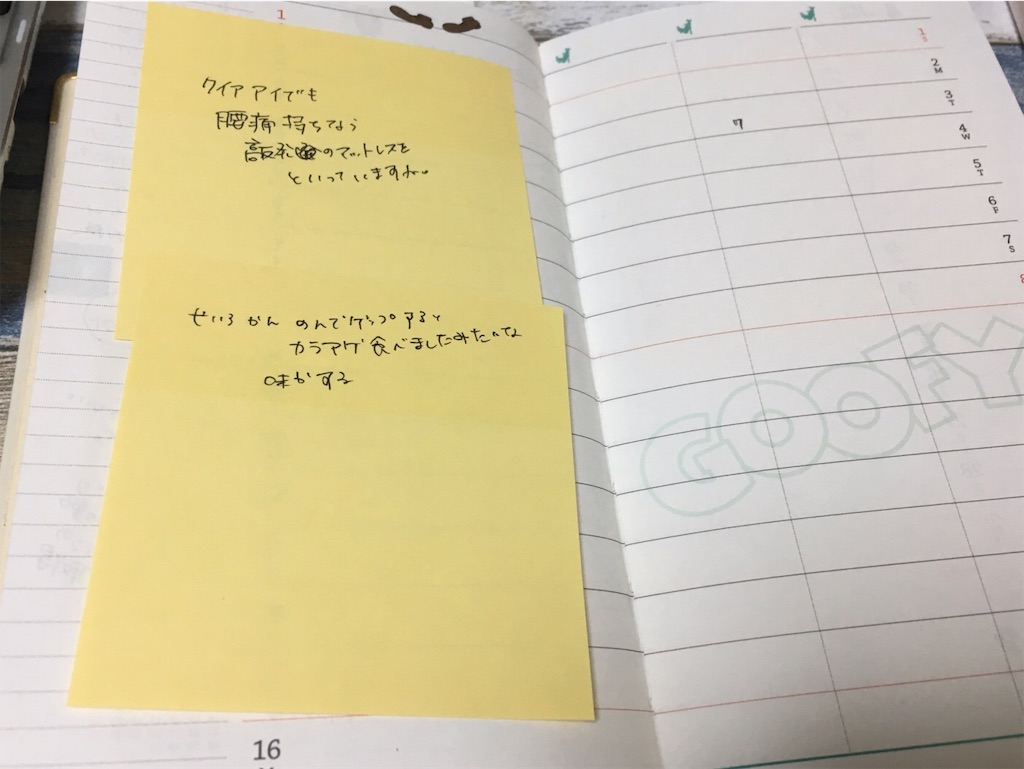 1
クイア アイでも
腰痛持ちなら
高反発のマットレスを
といっていますが。
せいろ がん のんでゲップすると
カラアゲ食べましたみたいな
味がする
16
7
1
S
2
M
3
T
4
W
5
T
6
F
7
S
8
GOOFY